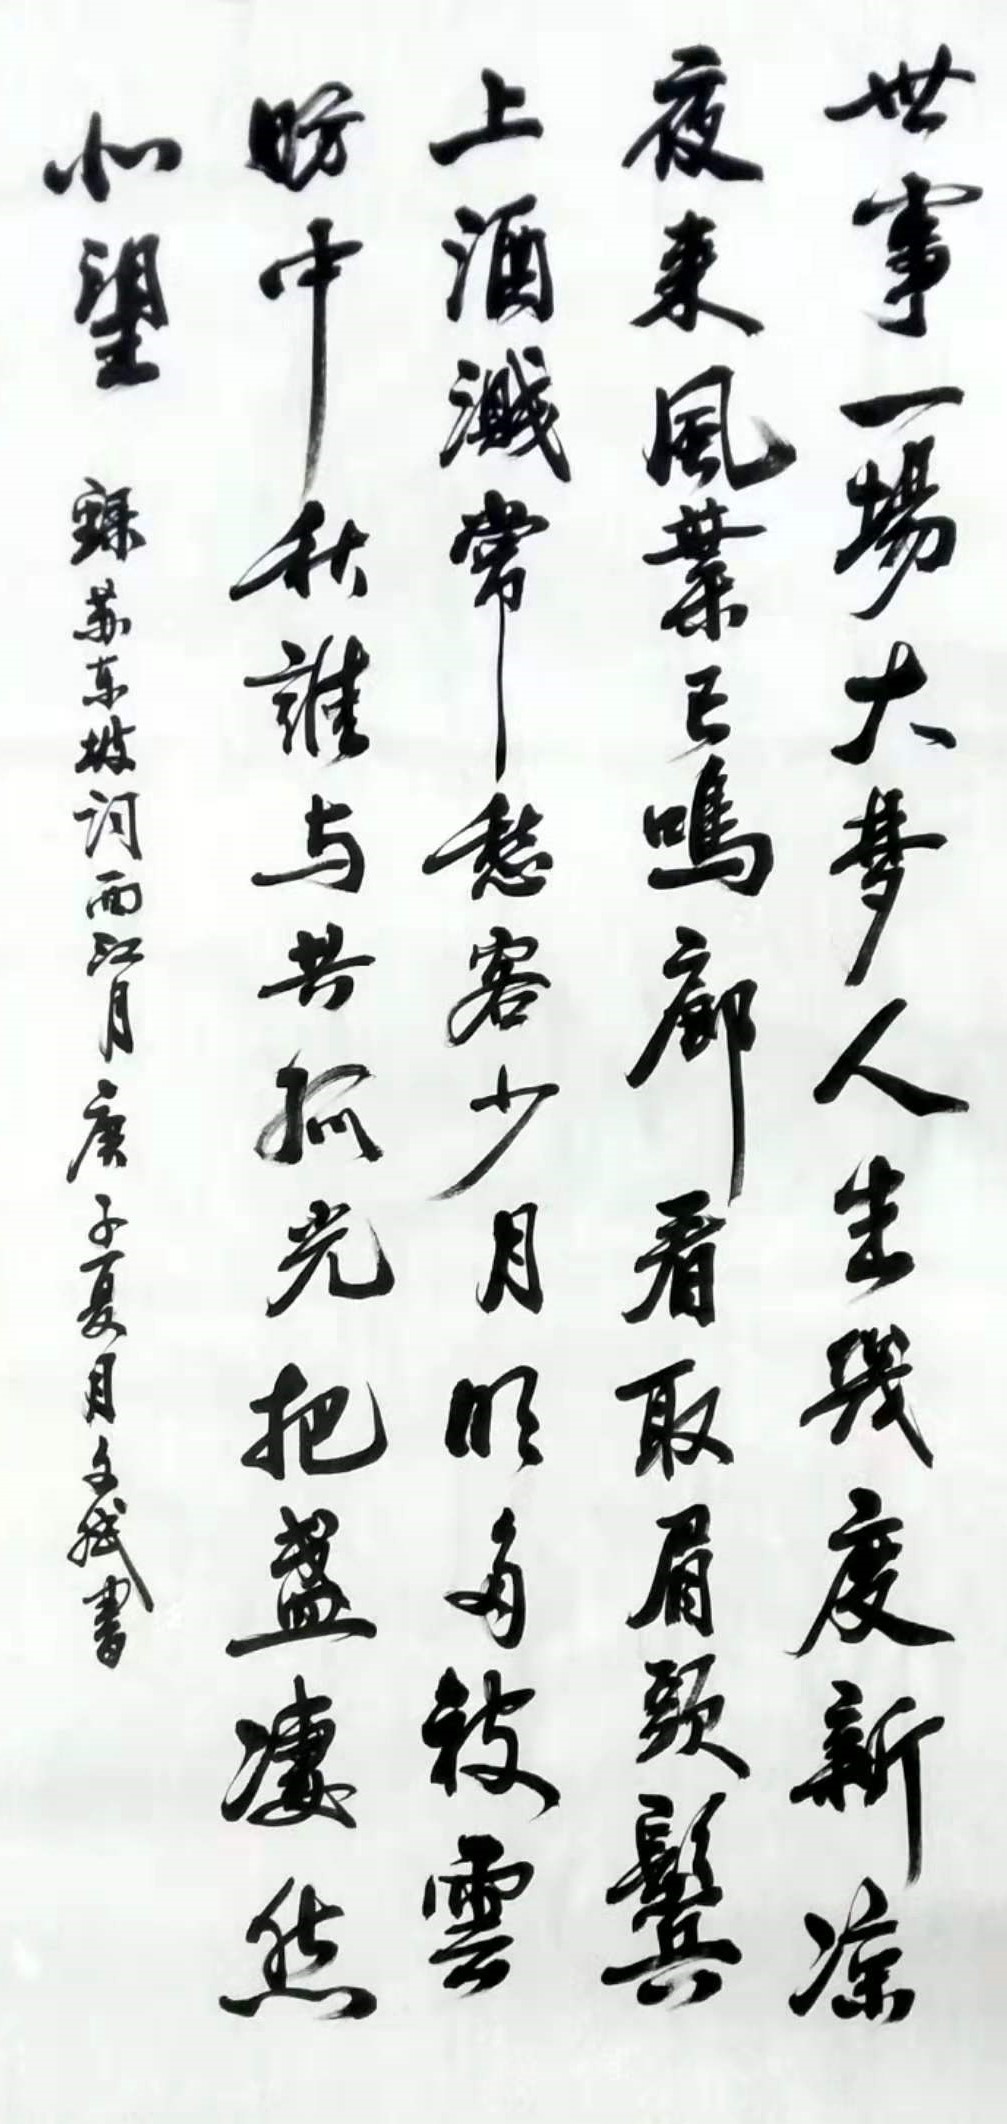 世事一場大梦人生幾度新涼
夜来風葉已鳴廊看取眉頭鬢
上酒濺常愁客少月明多被雲
妨中秋誰与共孤光把盞凄然
北望
録苏东坡词西江月庚子夏月文斌書